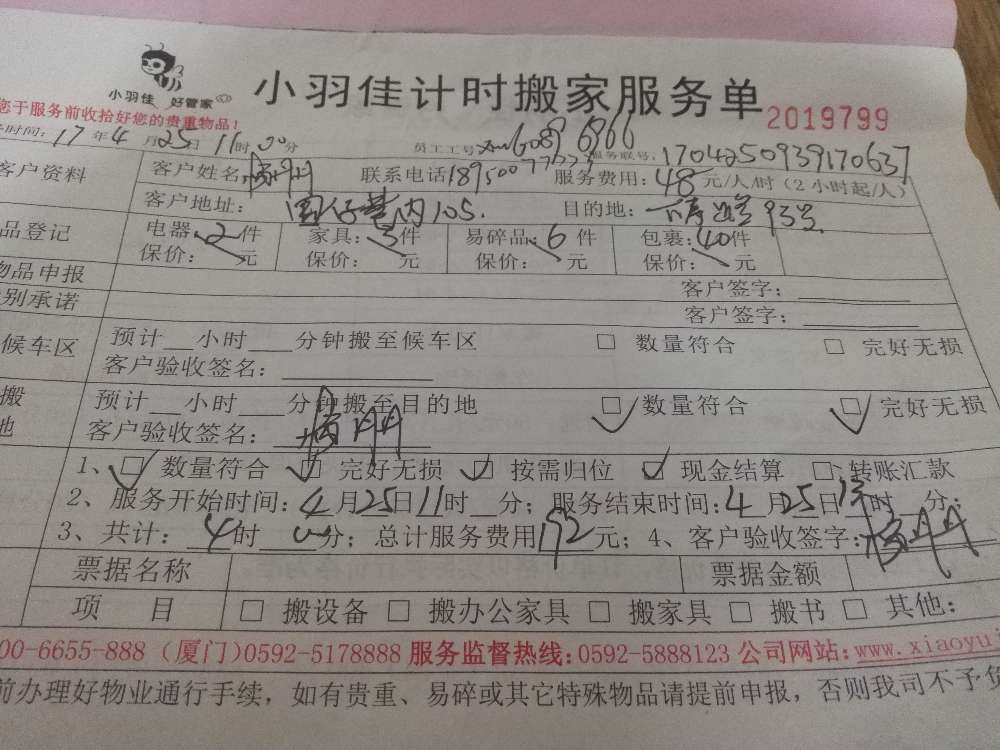 小羽佳 好管家
小羽佳计时搬家服务单 2019799
您于服务前收拾好您的贵重物品!
时间: 17年4月25日11时00分 员工工号 6089 6966 服务联号: 1704250939170637
客户资料 客户姓名: 杨丹丹 联系电话 服务费用: 48元/人/时 (2小时起/人)
客户地址: 105. 目的地: 93号
品登记 电器: 2件 家具: 3件 易碎品: 6件 包裹: 40件
保价: 元 保价: 元 保价: 元 保价: 元
物品申报 客户签字:
别承诺 客户签字:
候车区 预计__小时___分钟搬至候车区 □ 数量符合 □ 完好无损
客户验收签名:
搬
地 预计__小时___分钟搬至目的地 ☑ 数量符合 ☑ 完好无损
客户验收签名: 杨丹丹
1、☑ 数量符合 ☑ 完好无损 ☑ 按需归位 ☑ 现金结算 □ 转账汇款
2、服务开始时间: 4月25日11时__分; 服务结束时间: 4月25日13时__分;
3、共计: 4时00分; 总计服务费用192元; 4、客户验收签字: 杨丹丹
票据名称 票据金额
项 目 □ 搬设备 □ 搬办公家具 □ 搬家具 □ 搬书 □ 其他:
00-6655-888 (厦门)0592-5178888 服务监督热线:0592-5888123 公司网站:www.xiaoyu
前办理好物业通行手续,如有贵重、易碎或其它特殊物品请提前申报,否则我司不予负